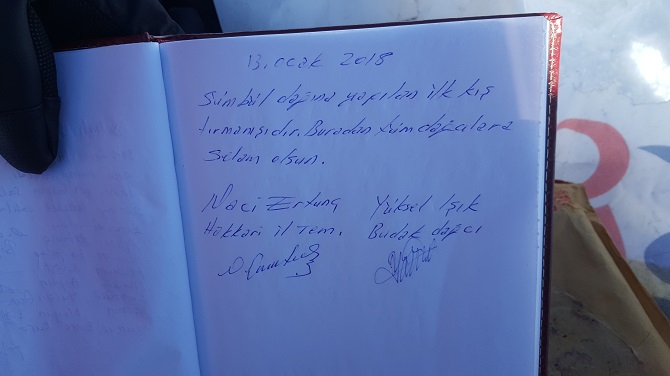 13. ocak 2018
Sümbül dağına yapılan ilk kış
tırmanışıdır. Buradan tüm dağcılara
selam olsun.
Naci Ertunç Yüksel Işık
Hakkari il Tem. Budak dağcı